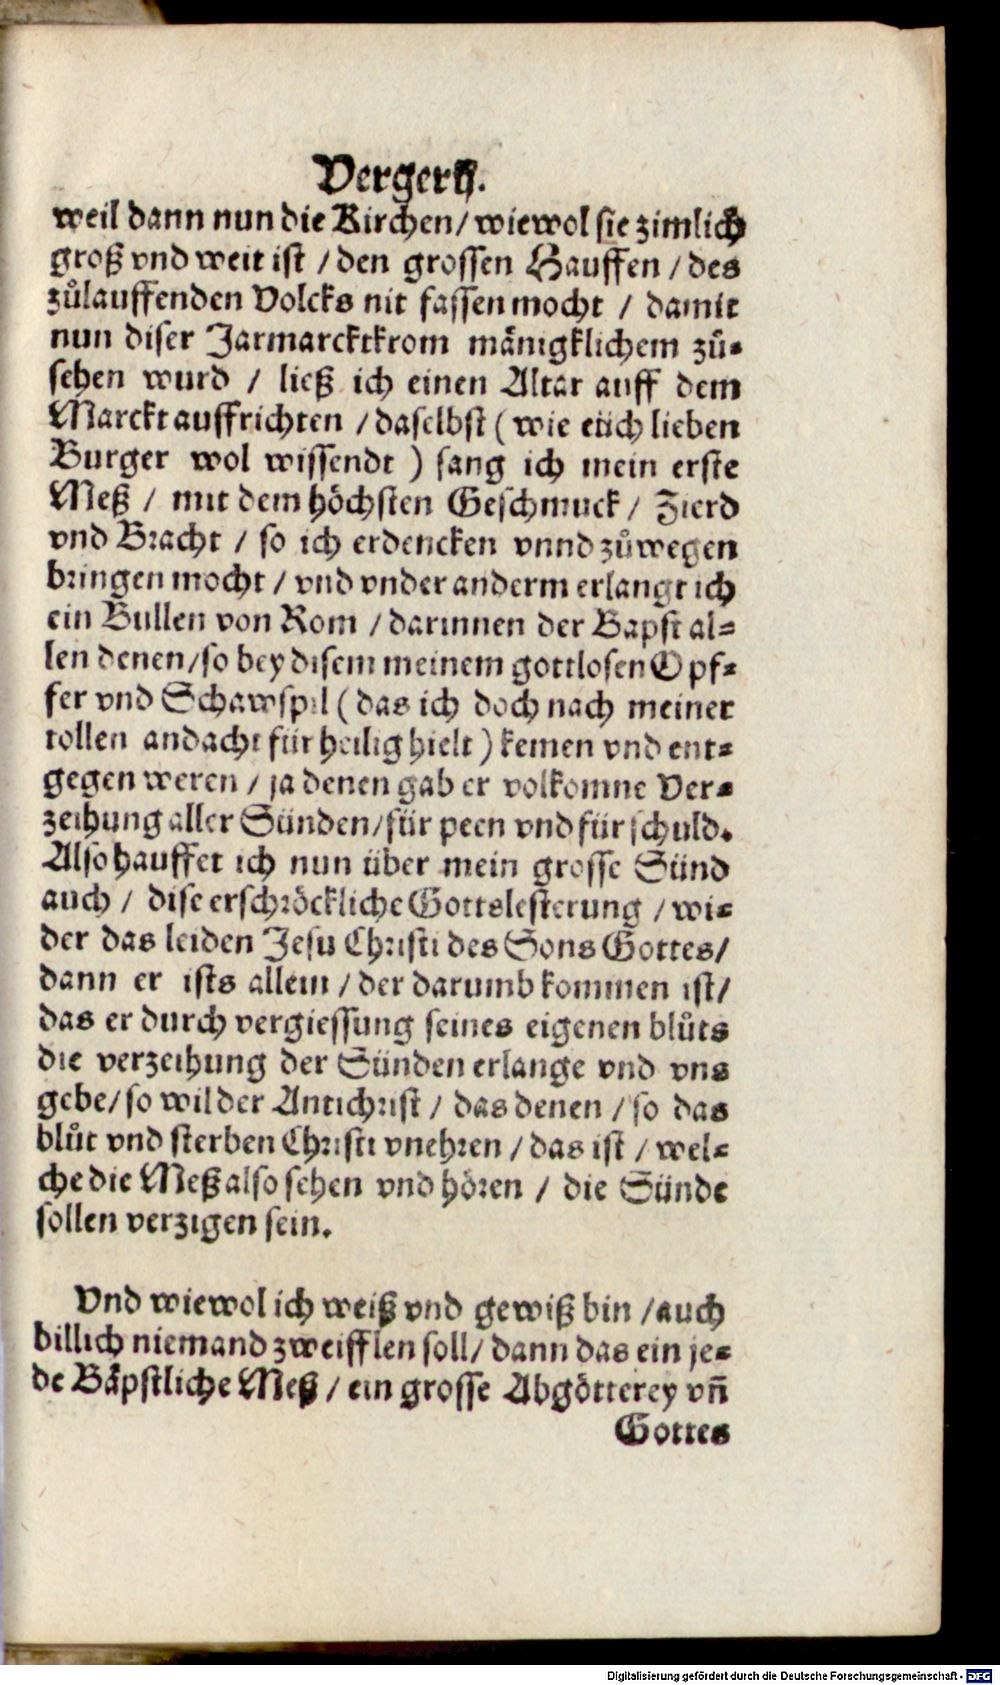 Vergerij.
weil dann nun die Kirchen / wiewol sie zimlich
groß vnd weit ist / den grossen Hauffen / des
zůlauffenden Volcks nit fassen mocht / damit
nun diser Jarmarcktkrom mänigklichem zů-
sehen wurd / ließ ich einen Altar auff dem
Marckt auffrichten / daselbst ( wie etlich lieben
Burger wol wissendt ) sang ich mein erste
Meß / mit dem höchsten Geschmuck / Zierd
vnd Bracht / so ich erdencken vnnd zůwegen
bringen mocht / vnd vnder anderm erlangt ich
ein Bullen von Rom / darinnen der Bapst al-
len denen / so bey disem meinem gottlosen Opf-
fer vnd Schawspil ( das ich doch nach meiner
tollen andacht für heilig hielt ) kemen vnd ent-
gegen weren / ja denen gab er volkomne Ver-
zeihung aller Sünden / für peen vnd für schuld.
Also hauffet ich nun über mein grosse Sünd
auch / dise erschröckliche Gottslesterung / wi-
der das leiden Jesu Christi des Sons Gottes /
dann er ists allein / der darumb kommen ist /
das er durch vergiessung seines eigenen blůts
die verzeihung der Sünden erlange vnd vns
gebe / so wil der Antichrist / das denen / so das
blůt vnd sterben Christi vnehren / das ist / wel-
che die Meß also sehen vnd hören / die Sünde
sollen verzigen sein.
Vnd wiewol ich weiß vnd gewiß bin / auch
billich niemand zweifflen soll / dann das ein je-
de Bäpstliche Meß / ein grosse Abgötterey vñ
Gottes
Digitalisierung gefördert durch die Deutsche Forschungsgemeinschaft - DFG